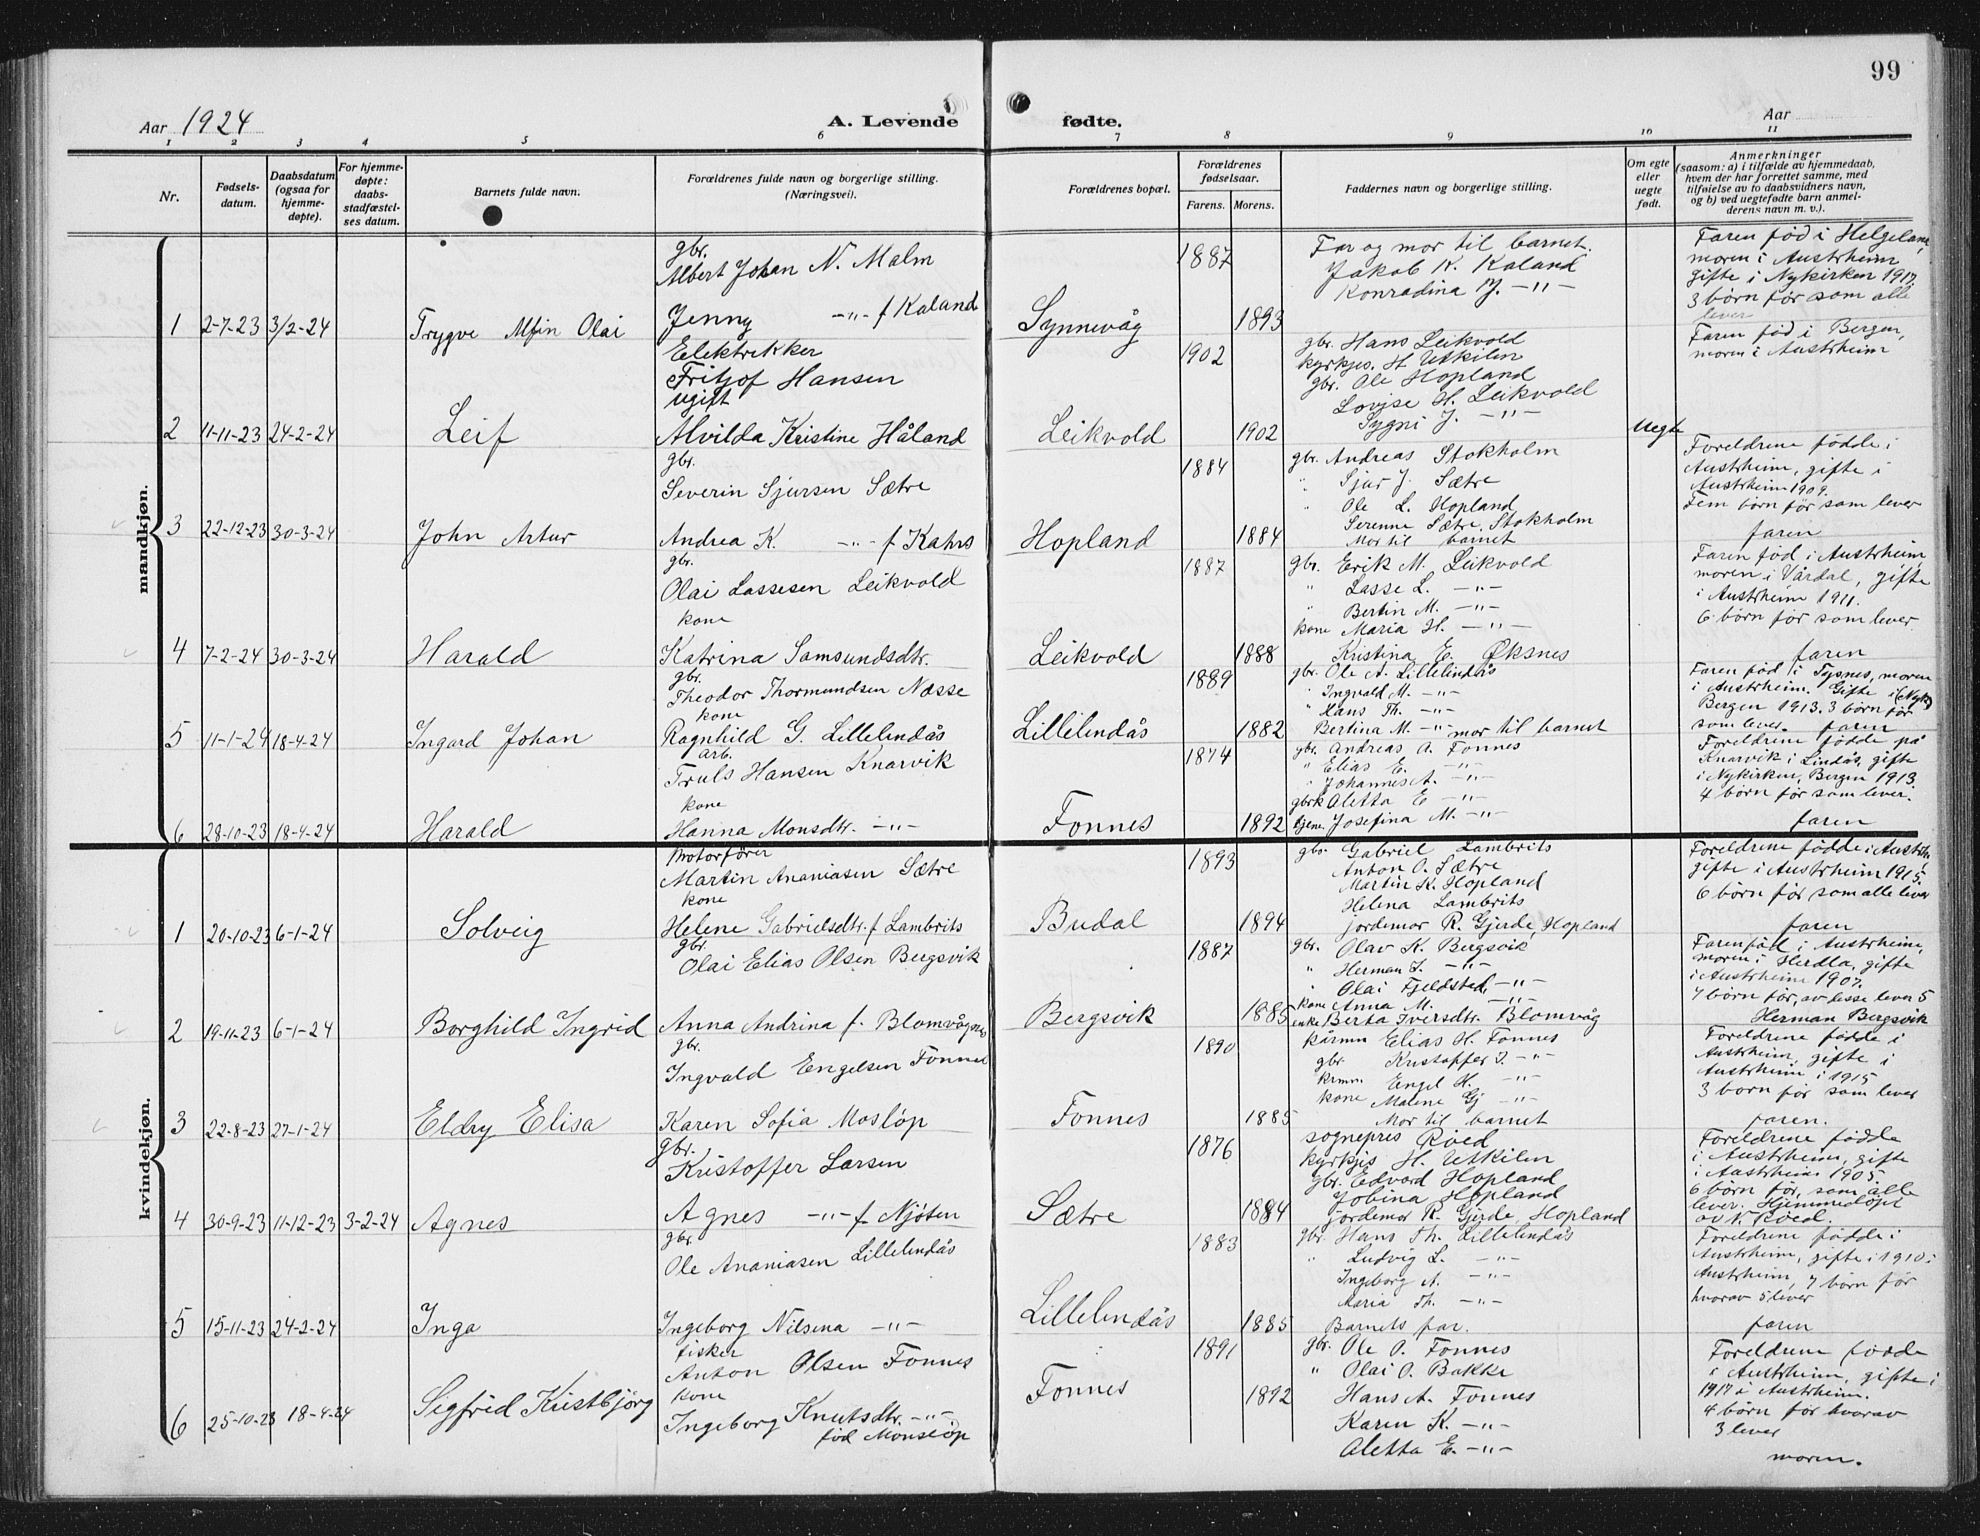 99
Aar 1924
A. Levende fødte.
Aar
1 2 3 4 5 6 7 8 9 10 11
Nr.
Fødsels-
datum.
Daabsdatum
(ogsaa for
hjemme-
døpte).
For hjemme-
døpte:
daabs-
stadfæstel-
ses datum.
Barnets fulde navn.
Forældrenes fulde navn og borgerlige stilling.
(Næringsvei).
Forældrenes bopæl.
Forældrenes
fødselsaar.
Farens. Morens.
Faddernes navn og borgerlige stilling.
Om egte
eller
uegte
født.
Anmerkninger
(saasom: a) i tilfælde av hjemmedaab,
hvem der har forrettet samme, med
tilføielse av to daabsvidners navn,
og b) ved uegtefødte barn anmel-
derens navn m. v.).
mandkjøn.
1 2-7-23 3/2-24 Trygve Alfin Olai
gbr.
Albert Johan N. Malm
Jenny -"- f. Kaland
Synnevåg
1887 1893
Far og mor til barnet.
Jakob K. Kaland
Konradina J. -"-
Faren fød i Helgeland,
moren i Austrheim
gifte i Nykirken 1917.
3 börn før som alle
lever
2 11-11-23 24-2-24 Leif
Elektrikker
Fritjof Hansen
ugift
Alvilda Kristine Håland
Leikvold
1902 1902
gbr. Hans Leikvold
kyrkjes. H Utkilen
gbr. Ole Hopland
Lovise H. Leikvold
Sygni J. -"-
Uegte
Faren fød i Bergen,
moren i Austrheim
3 22-12-23 30-3-24 John Artur
gbr.
Severin Sjursen Sætre
Andrea K. -"- f. Kahrs
Hopland
1884 1884
gbr. Andreas Stokholm
" Sjur J. Sætre
" Ole L. Hopland
Serenne Sætre, Stokholm
Mor til barnet
Foreldrene fødde i
Austrheim, gifte i
Austrheim 1909.
Fem börn før som lever
faren
4 7-2-24 30-3-24 Harald
gbr.
Olai Lassesen Leikvold
kone
Katrina Samsundsdtr.
Leikvold
1887 1888
gbr. Erik M. Leikvold
" Lasse L. -"-
" Bertin M. -"-
kone Maria H. -"-
Kristina E. Øksnes
Faren fød i Austrheim,
moren i Vårdal, gifte
i Austrheim 1911.
6 börn før som lever
faren
5 11-1-24 18-4-24 Ingard Johan
gbr.
Theodor Thormundsen Næsse
kone
Ragnhild G. Lillelindås
Lillelindås
1889 1882
gbr. Ole A. Lillelindås
" Ingvald M. -"-
" Hans Th. -"-
Bertina M. -"- mor til barnet
Faren fød i Tysnes, moren
i Austrheim. Gifte i (Nyk)
Bergen 1913. 3 börn før
som lever. faren
6 28-10-23 18-4-24 Harald
arb.
Truls Hansen Knarvik
kone
Hanna Monsdtr. -"-
Fonnes
1874 1892
gbr. Andreas A. Fonnes
" Elias E. -"-
" Johannes A. -"-
gbrk Aletta E -"-
tjene. Josefina M. -"-
Foreldrene fødde på
Knarvik i Lindås, gifte
i Nykirken, Bergen 1913.
4 börn før som lever.
faren
kvindekjøn.
1 20-10-23 6-1-24 Solveig
Motorfører
Martin Ananiasen Sætre
kone
Helene Gabrielsdtr. f. Lambrits
Budal
1893 1894
gbr. Gabriel Lambrits
Anton O. Sætre
Martin K. Hopland
Helena Lambrits
jordemor R. Gjerde, Hopland
Foreldrene fødde i Austrh
gifte i Austrheim 1915.
6 börn før som alle lever
faren
2 19-11-23 6-1-24 Borghild Ingrid
gbr.
Olai Elias Olsen Bergsvik
Anna Andrina f. Blomvågnes
Bergsvik
1887 1885
gbr. Olav K. Bergsvik
" Herman I. -"-
" Olai Fjeldsted, -"-
kone Anna M. -"-
enke Berta Iversdtr. Blomvåg
Faren fød i Austrheim,
moren i Herdla, gifte
i Austrheim 1907.
7 börn før, av disse lever 5
Herman Bergsvik
3 22-8-23 27-1-24 Eldry Elisa
gbr.
Ingvald Engelsen Fonnes
Karen Sofia Mosløp
Fonnes
1890 1885
kårmm Elias H. Fonnes
gbr Kristoffer I. -"-
krmm. Engel H. -"-
kone Malene Gj -"-
Mor til barnet
Foreldrene fødde i
Austrheim, gifte i
Austrheim i 1915
3 born før som lever
faren.
4 30-9-23 11-12-23 3-2-24 Agnes
gbr.
Kristoffer Larsen
Agnes -"- f. Njöten
Sætre
1876 1884
sognepres Röed
kyrkjes H. Utkilen
gbr. Edvard Hopland
Jobina Hopland
jordemor R. Gjerde, Hopland
Foreldrene fødde
i Austrheim, gifte
i Austrheim 1905
6 börn før, som alle
lever. Hjemmedöpt
av N. Röed.
5 15-11-23 24-2-24 Inga
gbr.
Ole Ananiasen Lillelindås
Ingeborg Nilsena -"-
Lillelindås
1883 1885
gbr. Hans Th. Lillelindås
" Ludvig L. -"-
Ingeborg A. -"-
Maria Th. -"-
Barnets far.
Foreldrene fødde i
Austrheim, gifte i 1910 i
Austrheim, 7 börn før
hvorav 5 lever
faren
6 25-10-23 18-4-24 Sigfrid Kristbjörg
fisker
Anton Olsen Fonnes
kone
Ingeborg Knutsdtr. -"-
fød Monslöp
Fonnes
1891 1892
gbr. Ole O. Fonnes
" Olai O. Bakke
Hans A. Fonnes
Karen K. -"-
Aletta E. -"-
Foreldrene fødde
i Austrheim, gifte i
1917 i Austrheim.
4 börn før hvorav
3 lever
moren.